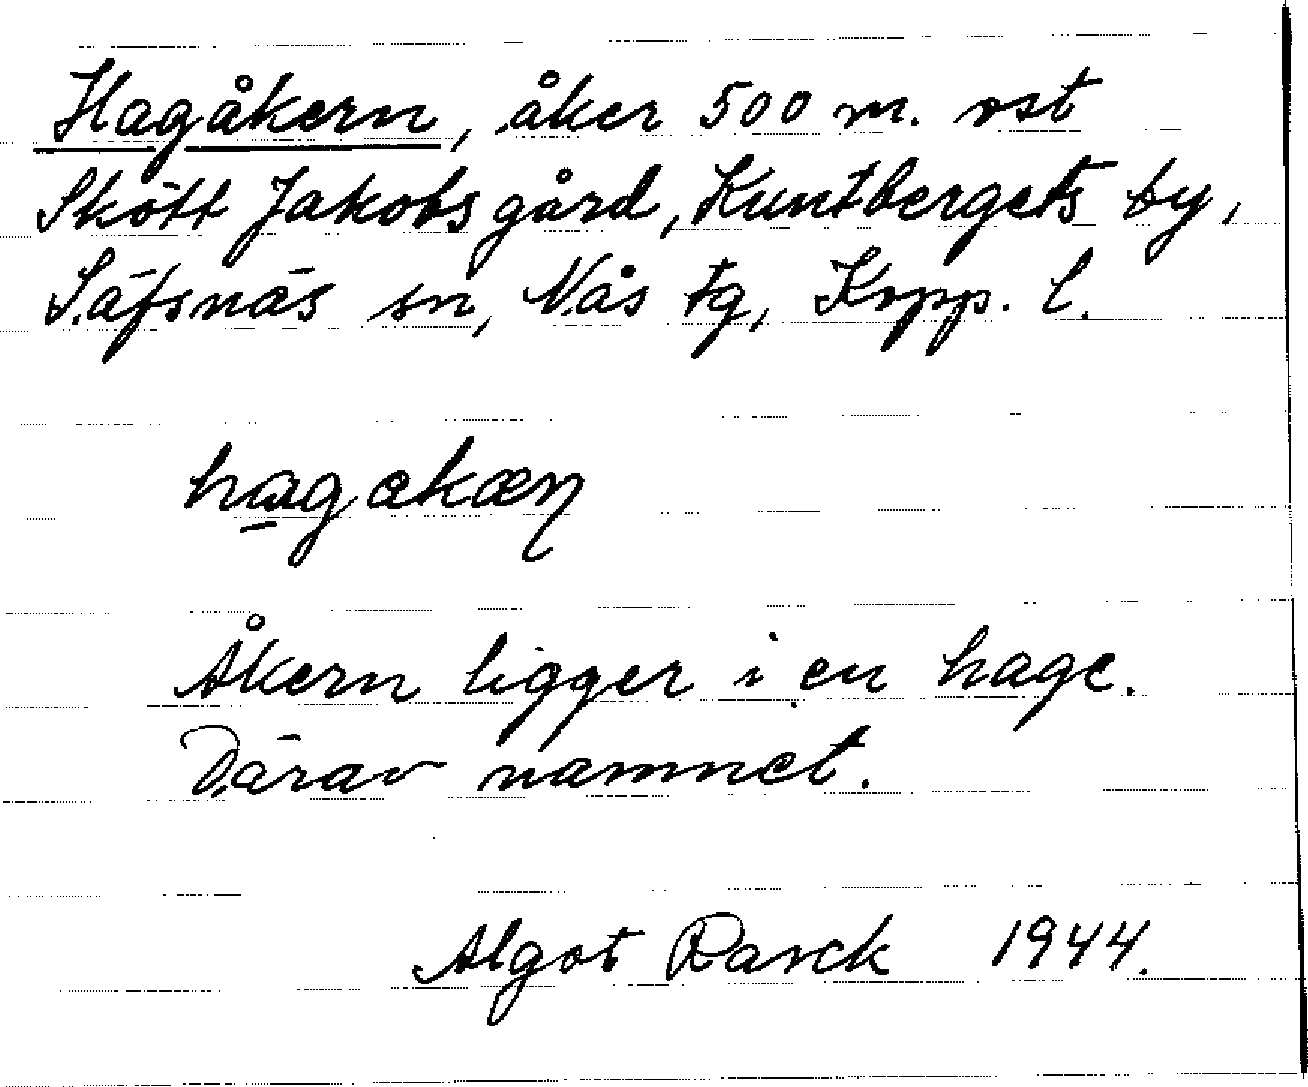 Hagåkern, åker 500 m. ost
Skött Jakobsgård, Kuntbergets by,
Säfsnäs sn, Nås tg, Kopp. l.
hagakæn
Åkern ligger i en hage.
Därav namnet.
Algot Rarck 1944.